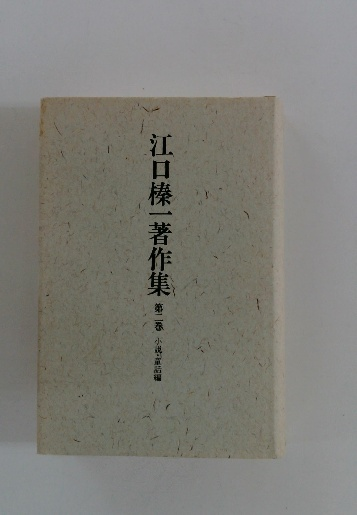 江口榛一著作集 第二巻 小説・童話編